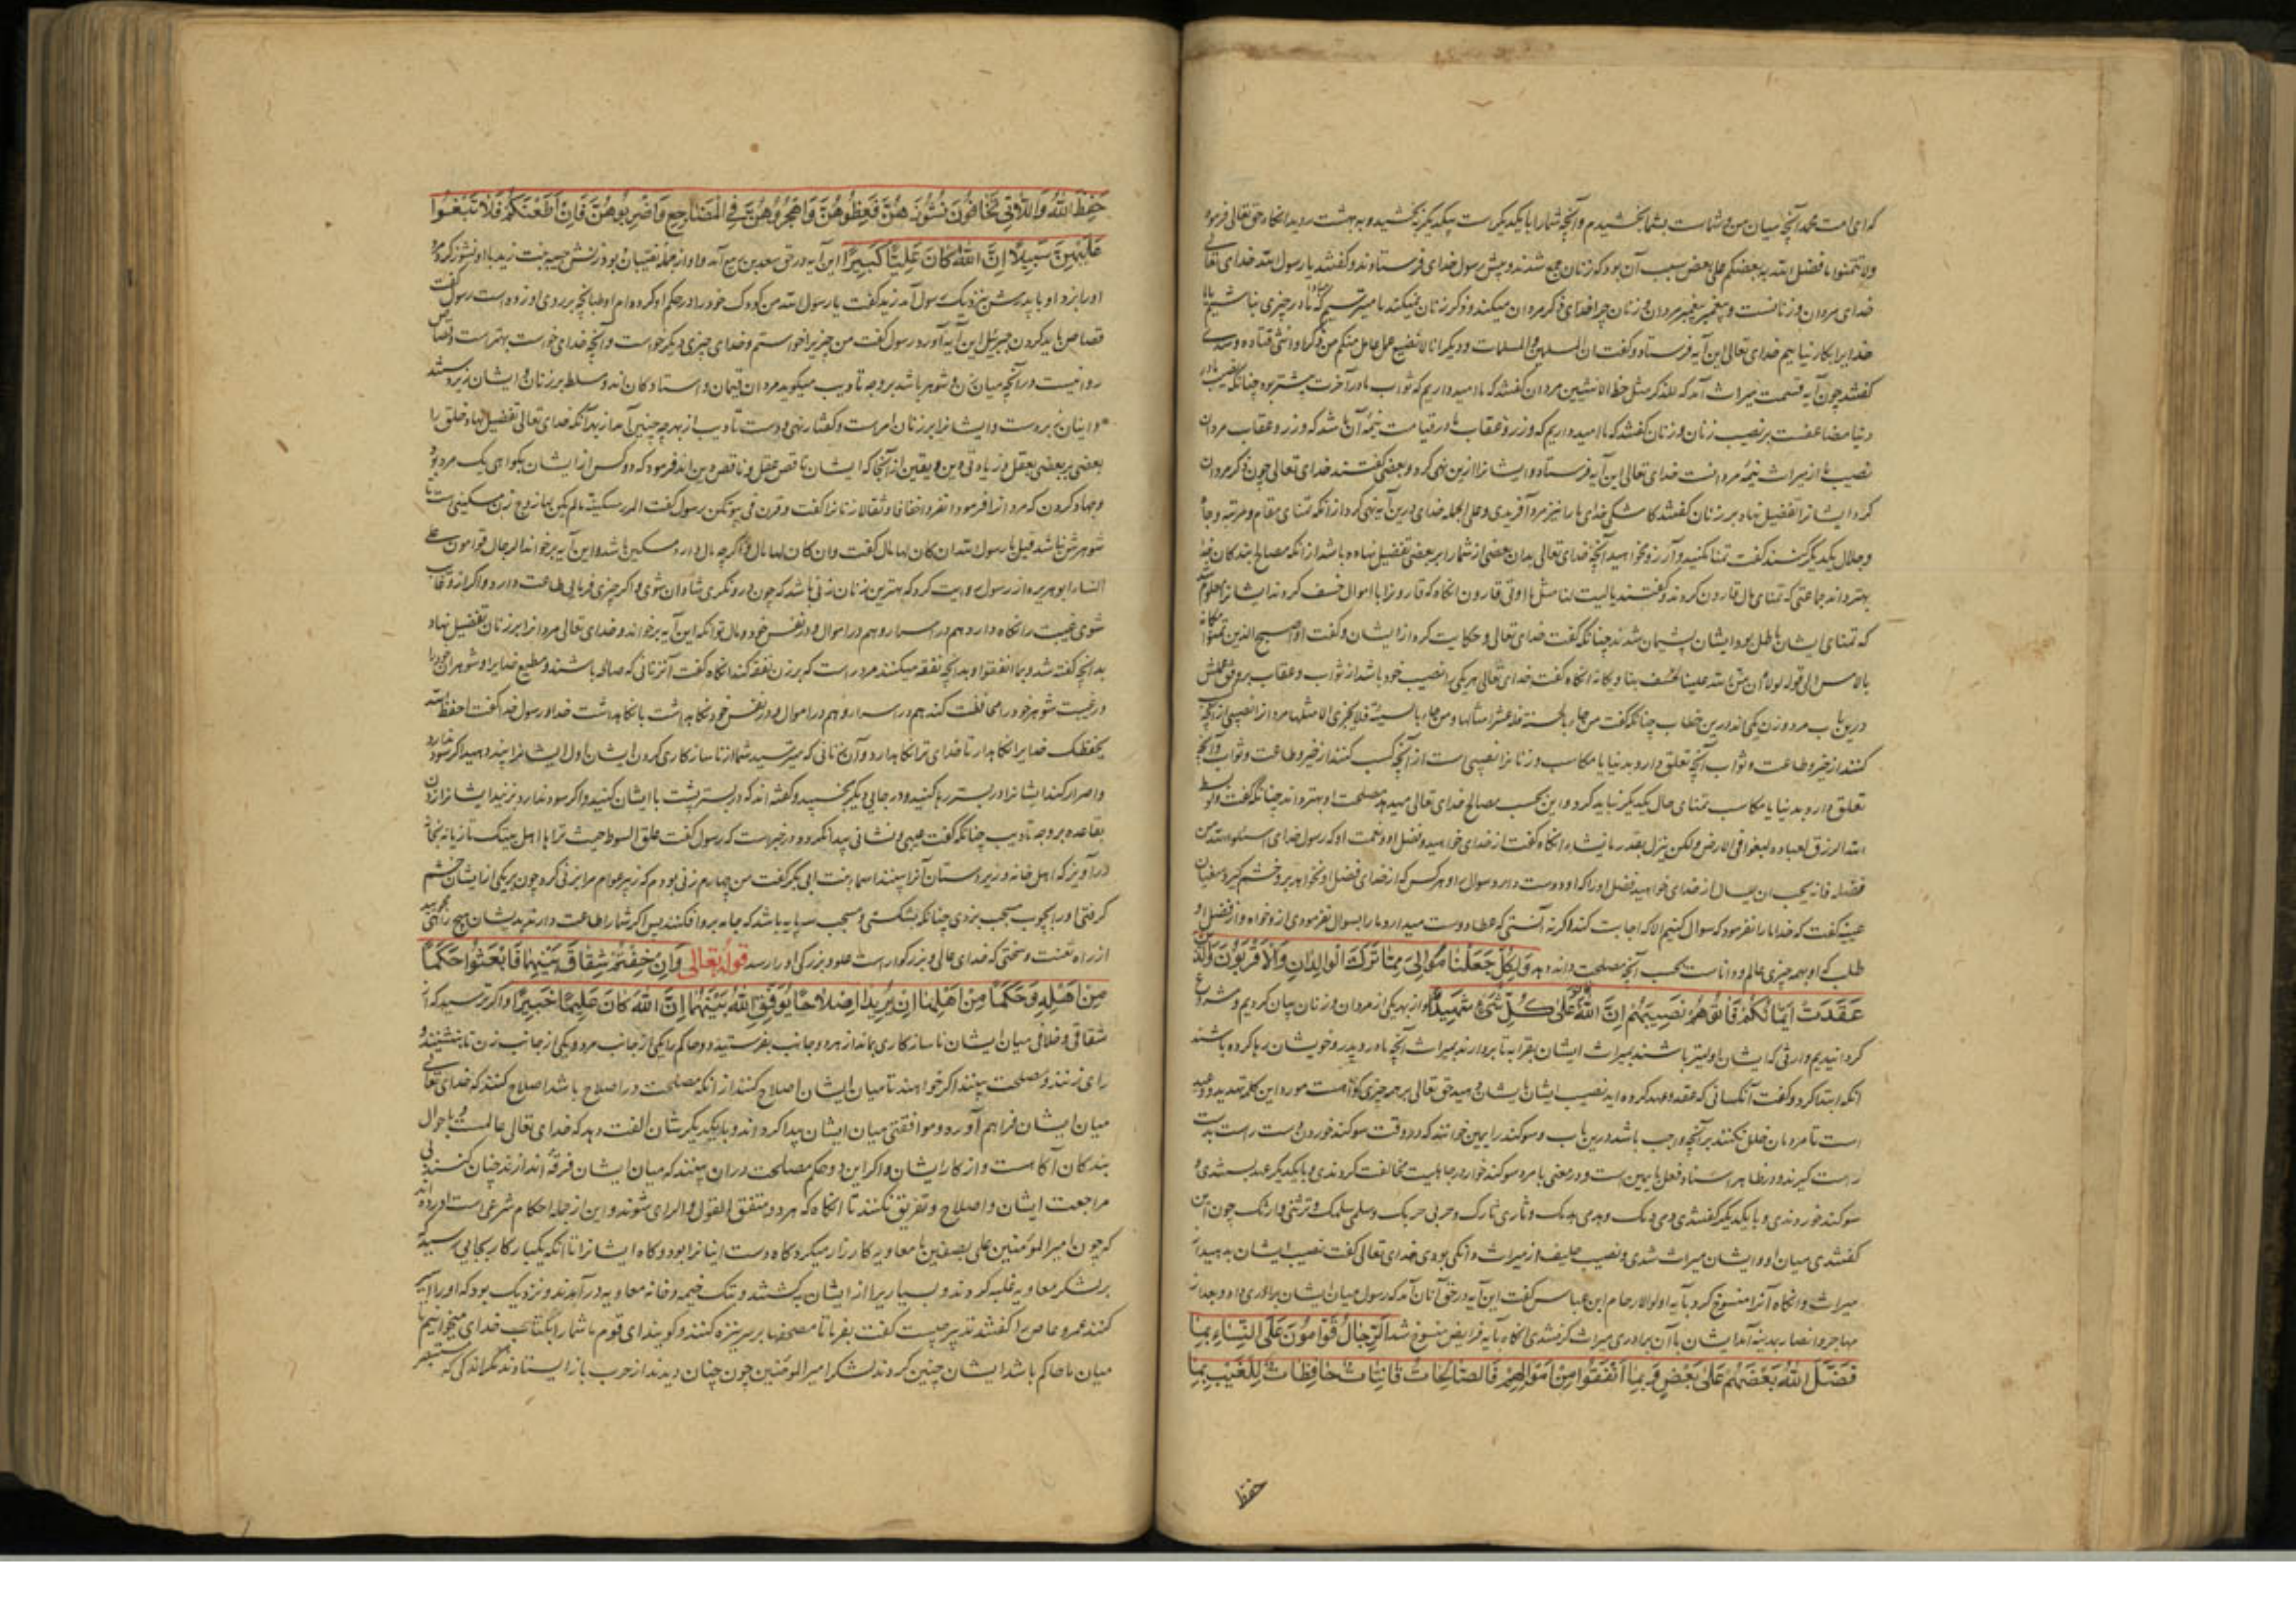 که ای امت محمد آنچه میان من و شماست بشما بخشیدم و آنچه شما را با یکدیگرست بیکدیگر بخشید و به بهشت روید انکاه حق تعالی فرمود
ولا تتمنوا ما فضل الله به بعضکم علی بعض سبب آن بود که زنان جمع شدند و پیش رسول خدای فرستادند و گفتند یا رسول الله خدای تعالی
خدای مردان و زنانست و پیغمبر پیغمبر مردان و زنان چرا خدای ذکر مردان میکند و ذکر زنان نمیکند ما میترسیم که در ما چیزی نباشد
خدایرا بکار نیاییم خدای تعالی این آیه فرستاد و گفت ان المسلمین والمسلمات و دیگر انی لا اضیع عمل عامل منکم من ذکر او انثی قتاده و سدی
گفتند چون آیه قسمت میراث آمد که للذکر مثل حظ الانثیین مردان گفتند که ما امید داریم که ثواب ما در آخرت بیشتر بود چنانکه نصیب ما در
دنیا مضاعفست بر نصیب زنان و زنان گفتند که ما امید داریم که وزر و عقاب ما در قیامت نیمه آن باشد که وزر و عقاب مردان
نصیب ما از میراث نیمه مردانست خدای تعالی این آیه فرستاد و ایشانرا ازین نهی کرد و بعضی گفتند خدای تعالی چون ذکر مردان
کرد و ایشانرا تفضیل نهاد بر زنان گفتند کاشکی خدای ما را نیز مرد آفریدی و علی الجمله خدای درین آیه نهی کرد از آنکه تمنای مقام و مرتبه و جاه
و جلال یکدیگر کنند گفت تمنا مکنید و آرزو مخواهید آنچه خدای تعالی بدان بعضی از شما را بر بعضی تفضیل نهاده باشد از انکه مصالح بندگان خود
بهتر داند جماعتی که تمنای مال قارون کردند و گفتند یا لیت لنا مثل ما اوتی قارون انکاه که قارونرا با اموال خسف کردند ایشانرا معلوم شد
که تمنای ایشان باطل بود ایشان پشیمان شدند چنانکه گفت خدای تعالی و حکایت کرد از ایشان و گفت و اصبح الذین تمنوا مکانه
بالامس الی قوله لولا ان من الله علینا لخسف بنا ویکانه انکاه گفت خدای تعالی هر یکی را نصیب خود باشد از ثواب و عقاب بر وفق عملش
درین باب مرد و زن یکی اند درین خطاب چنانکه گفت من جاء بالحسنة فله عشر امثالها ومن جاء بالسیئة فلا یجزی الا مثلها مردانرا نصیبی از آنچه کسب
کنند از خیر و طاعت و ثواب آنچه تعلق دارد بدنیا یا مکاسب و زنانرا نصیبی است از آنچه کسب کنند از خیر و طاعت و ثواب و آنچه
تعلق دارد بدنیا یا مکاسب تمنای حال یکدیگر نباید کرد و این بحسب مصالح خدای تعالی میدهد مصلحت او بهتر داند چنانکه گفت ولو بسط
الله الرزق لعباده لبغوا فی الارض ولکن ینزل بقدر ما یشاء انکاه گفت از خدای خواهید و فضل او و نعمت او که رسول خدای اسئلوا الله من
فضله فانه یحب ان یسال از خدای خواهید فضل او را که او دوست دارد سوال او هر کس که از خدای فضل او نخواهد بر و خشم گیرد سفیان
عیینه گفت که خدا ما را نفرمود که سوال کنیم الا که اجابت کند و اگر نه آنستی که عطا دوست میدارد ما را بسوال نفرمودی از و خواه و از فضل او
طلب که او بهمه چیزی عالم و داناست بحسب آنچه مصلحت داند دهد وَلِكُلٍّ جَعَلْنَا مَوَالِيَ مِمَّا تَرَكَ الْوَالِدَانِ وَالْأَقْرَبُونَ وَالَّذِينَ
عَقَدَتْ أَيْمَانُكُمْ فَآتُوهُمْ نَصِيبَهُمْ إِنَّ اللَّهَ كَانَ عَلَىٰ كُلِّ شَيْءٍ شَهِيدًا و از بهر یکی از مردان و زنان بیان کردیم و مشروع
گردانیدیم وارثی که ایشان اولیتر باشند بمیراث ایشان بقرابه تا بردارند بمیراث آنچه مادر و پدر و خویشان رها کرده باشند
انکه ابتدا کرد و گفت آنکسانی که عقد و عهد کرده اید نصیب ایشان بایشان دهید حق تعالی بر همه چیزی گواهست مورد این کلمه تهدید و وعید
است تا مردمان خلل نکنند بر آنچه واجب باشد درین باب و سوگند را یمین خوانند که در وقت سوگند خوردن دست راست بدست
راست گیرند و در ظاهر اسناد فعل با یمین است و در معنی با مرد سوگند خواره در جاهلیت مخالفت کردندی و با یکدیگر عهد بستندی و
سوگند خوردندی و با یکدیگر گفتندی دمی دمک و هدمی هدمک و ثاری ثارک و حربی حربک و سلمی سلمک و ترثنی و ارثک چون این
گفتندی میان او و ایشان میراث شدی و نصیب حلیف از میراث دانگی بودی خدای تعالی گفت نصیب ایشان بدهید از
میراث و انکاه آنرا منسوخ کرد بآیه اولوا الارحام ابن عباس گفت این آیه در حق آنان آمد که رسول میان ایشان برادری داد و بعد از
مهاجر و انصار بمدینه آمد ایشان بآن برادری میراث گرفتندی انکاه بآیه فرایض منسوخ شد اَلرِّجَالُ قَوَّامُونَ عَلَى النِّسَاءِ بِمَا
فَضَّلَ اللَّهُ بَعْضَهُمْ عَلَىٰ بَعْضٍ وَبِمَا أَنْفَقُوا مِنْ أَمْوَالِهِمْ فَالصَّالِحَاتُ قَانِتَاتٌ حَافِظَاتٌ لِلْغَيْبِ بِمَا
حفظ
حَفِظَ اللَّهُ وَاللَّاتِي تَخَافُونَ نُشُوزَهُنَّ فَعِظُوهُنَّ وَاهْجُرُوهُنَّ فِي الْمَضَاجِعِ وَاضْرِبُوهُنَّ فَإِنْ أَطَعْنَكُمْ فَلَا تَبْغُوا
عَلَيْهِنَّ سَبِيلًا إِنَّ اللَّهَ كَانَ عَلِيًّا كَبِيرًا این آیه در حق سعد بن ربیع آمد و او از جمله نقیبان بود زنش حبیبه بنت زید با او نشوز کرد و
او را بزد او با پدرش بنزدیک رسول آمد زید گفت یا رسول الله من کودک خود را در حکم او کرده ام او طبانچه بر روی او زده است رسول گفت
قصاص باید کردن جبرئیل این آیه آورد رسول گفت من چیزی خواستم و خدای چیزی دیگر خواست و آنچه خدای خواست بهترست و قصاص
روا نیست در آنچه میان زن و شوهر باشد بر وجه تادیب میگوید مردان قیمان و استادگان اند و مسلط بر زنان و ایشان زیردستند
بعضی بر بعضی بعقل و زیادتی دین و یقین از آنجا که ایشان ناقص عقل و ناقص دین اند فرمود که دو کس از ایشان بگواهی یک مرد بود
و جهاد کردن که مردانرا فرمود انفروا خفافا وثقالا زنانرا گفت و قرن فی بیوتکن رسول گفت المرءة مسکینة ما لم یکن لها زوج زن مسکینی است تا
شوهرش نباشد قیل یا رسول الله ان کان لها مال گفت وان کان لها مال و اگر چه مال دارد مسکین باشد و این آیه برخواند الرجال قوامون علی
النساء ابو هریره از رسول روایت کرد که بهترین زنان زنی باشد که چون در و نگری شادان شوی و اگر چیزی فرمایی طاعت دارد و اگر از و غایب
شوی غیبت را نگاه دارد هم در اسرار و هم در اموال و در نفس خود و مال تو انکه این آیه برخواند و خدای تعالی مردانرا بر زنان تفضیل نهاد
بدانچه گفته شد و بما انفقوا و بدانچه نفقه میکنند مرد راست که بر زن نفقه کند انکاه گفت آن زنانی که صالحه باشند و مطیع خدایرا و شوهرانرا
در غیبت شوهر خود را محافظت کنند هم در اسرار و هم در اموال و در نفس خود نگاهداشت با نگاهداشت خدا و رسول خدا گفت احفظ الله
یحفظک خدایرا نگاهدار تا خدای ترا نگاهدارد و آن زنانی که میترسید شما از ناسازکاری کردن ایشان اول ایشانرا پند دهید اگر سود ندارد
و اصرار کنند ایشانرا در بستر رها کنید و در جایی دیگر بخسبید و گفته اند که در بستر پشت با ایشان کنید و اگر سود ندارد بزنید ایشانرا زدن
بقاعده بر وجه تادیب چنانکه گفت عیبی و نشانی پیدا نکردد و در خبرست که رسول گفت علق السوط حیث تراه اهل بیتک تازیانه بجائی
درآویز که اهل خانه و زیردستان آنرا بینند اسماء بنت ابی بکر گفت من چهارم زنی بودم که زبیر عوام مرا بزنی کرد چون بر یکی از ایشان خشم
گرفتی او را بچوب مسجب بزدی چنانکه بشکستی و مسجب سه پایه باشد که جامه بر و افکنند پس اگر شما را طاعت دارند بر ایشان هیچ راهی مجویید
از راه تعنت و سختی که خدای عالی و بزرگوارست علو و بزرگی او را رسد قوله تعالی وَإِنْ خِفْتُمْ شِقَاقَ بَيْنِهِمَا فَابْعَثُوا حَكَمًا
مِنْ أَهْلِهِ وَحَكَمًا مِنْ أَهْلِهَا إِنْ يُرِيدَا إِصْلَاحًا يُوَفِّقِ اللَّهُ بَيْنَهُمَا إِنَّ اللَّهَ كَانَ عَلِيمًا خَبِيرًا و اگر ترسید که از
شقاقی و خلافی میان ایشان ناسازکاری بماند از هر دو جانب بفرستید دو حاکم را یکی از جانب مرد و یکی از جانب زن تا بنشینند و
رای زنند و مصلحت بینند اگر خواهند تا میان ایشان اصلاح کنند از آنکه مصلحت در اصلاح باشد اصلاح کنند که خدای تعالی
میان ایشان فراهم آورد و موافقتی میان ایشان پیدا کرداند و با یکدیگرشان الفت دهد که خدای تعالی عالمست باحوال
بندگان آکاهست و از کار ایشان و اگر این دو حکم مصلحت در ان بینند که میان ایشان فرقه اندازند چنان کنند بی
مراجعت ایشان و اصلاح و تفریق نکنند تا انکاه که هر دو متفق القول و الرای شوند و این از جمله احکام شرعی است آورده اند
که چون امیرالمؤمنین علی بصفین با معاویه کارزار میکرد گاه دست اینانرا بود و گاه ایشانرا تا آنکه یکبار کار بجایی رسید که
بر لشکر معاویه غلبه کردند و بسیاری را از ایشان بکشتند و بتک خیمه و خانه معاویه درآمدند و نزدیک بود که او را اسیر
کنند عمرو عاص را گفتند تدبیر چیست گفت بفرما تا مصحفها بر سر نیزه کنند و گویند ای قوم ما شما را بکتاب خدای میخوانیم تا
میان ما حاکم باشد ایشان چنین کردند لشکر امیرالمؤمنین چون چنان دیدند از حرب باز ایستادند مگر اندکی که مستبصر